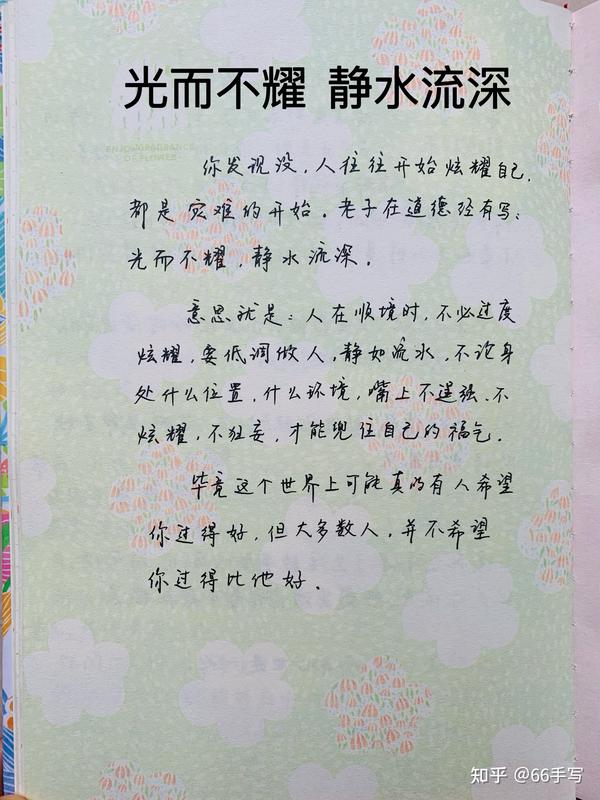 光而不耀 静水流深
ENJOY FRAGRANCE
OF FLOWER
你发现没,人往往开始炫耀自己,
都是灾难的开始。老子在道德经有写:
光而不耀,静水流深。
意思就是:人在顺境时,不必过度
炫耀,要低调做人,静如流水,不论身
处什么位置,什么环境,嘴上不逞强、不
炫耀,不狂妄,才能兜住自己的福气。
毕竟这个世界上可能真的有人希望
你过得好,但大多数人,并不希望
你过得比他好。
知乎 @66手写